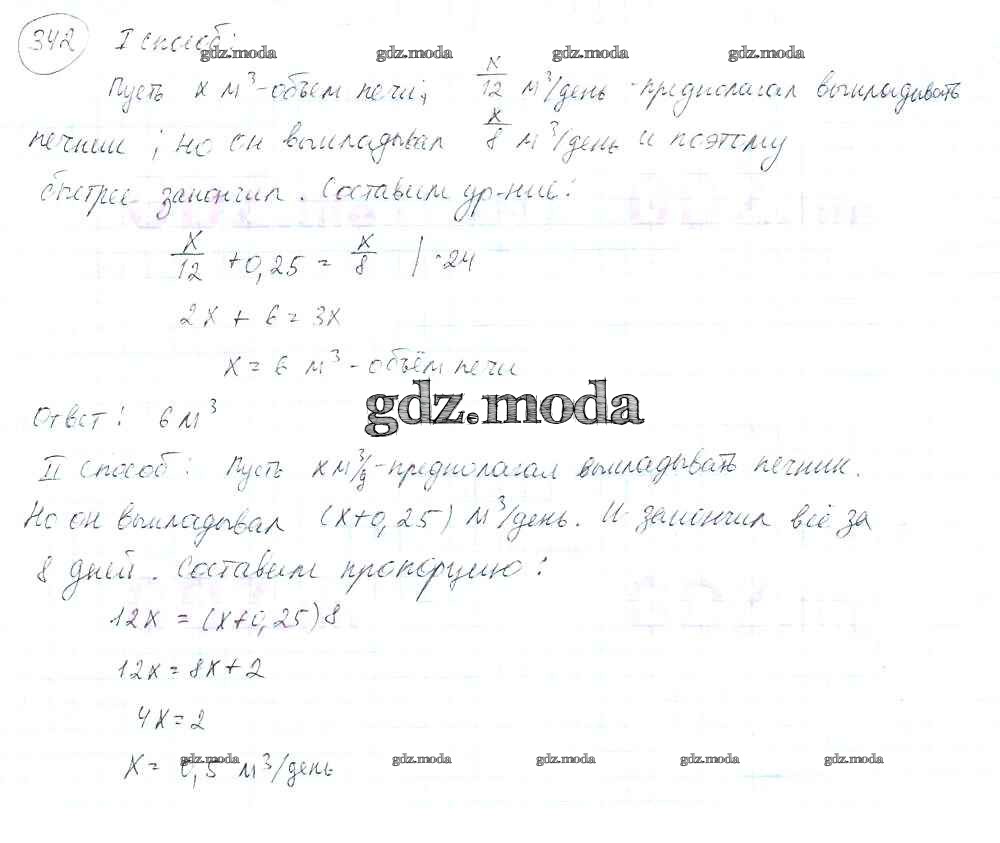 342 I способ:
gdz.moda gdz.moda gdz.moda gdz.moda gdz.moda
Пусть x м³ - объем печи, x/12 м³/день - предполагал выкладывать
печник; но он выкладывал x/8 м³/день и поэтому
быстрее закончил. Составим ур-ние:
x/12 + 0,25 = x/8 | · 24
2x + 6 = 3x
x = 6 м³ - объём печи
gdz.moda
Ответ: 6 м³
II способ: Пусть x м³/д - предполагал выкладывать печник.
Но он выкладывал (x+0,25) м³/день. И закончил всё за
8 дней. Составим пропорцию:
12x = (x+0,25)8
12x = 8x + 2
4x = 2
x = 0,5 м³/день
gdz.moda gdz.moda gdz.moda gdz.moda gdz.moda